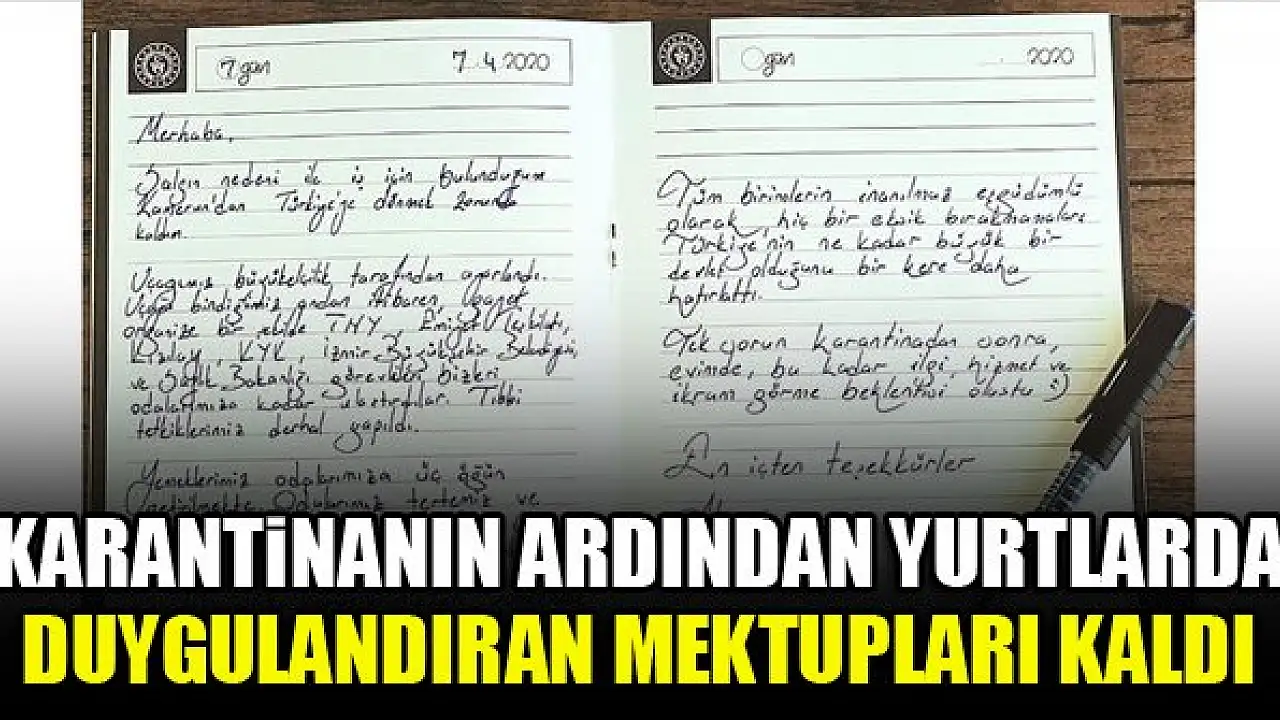 7.gün 7.4.2020
Merhaba,
Salgın nedeni ile iş için bulunduğum
Kamerun'dan Türkiye'ye dönmek zorunda
kaldım.
Uçağımız büyükelçilik tarafından ayarlandı.
Uçağa bindiğimiz andan itibaren, gayet
organize bir şekilde THY, Emniyet Teşkilatı,
Kızılay, KYK, İzmir Büyükşehir Belediyesi,
ve Sağlık Bakanlığı görevlileri bizleri
odalarımıza kadar ulaştırdılar. Tıbbi
tetkiklerimiz derhal yapıldı.
Yemeklerimiz odalarımıza üç öğün
getirilmekte. Odalarımız tertemiz ve
gün 2020
Tüm birimlerin inanılmaz eşgüdümlü
olarak, hiç bir eksik bırakmamaları
Türkiye'nin ne kadar büyük bir
devlet olduğunu bir kere daha
hatırlattı.
Tek sorun karantinadan sonra,
evimde, bu kadar ilgi, hizmet ve
ikram görme beklentisi oluştu :)
En içten teşekkürler
KARANTİNANIN ARDINDAN YURTLARDA
DUYGULANDIRAN MEKTUPLARI KALDI